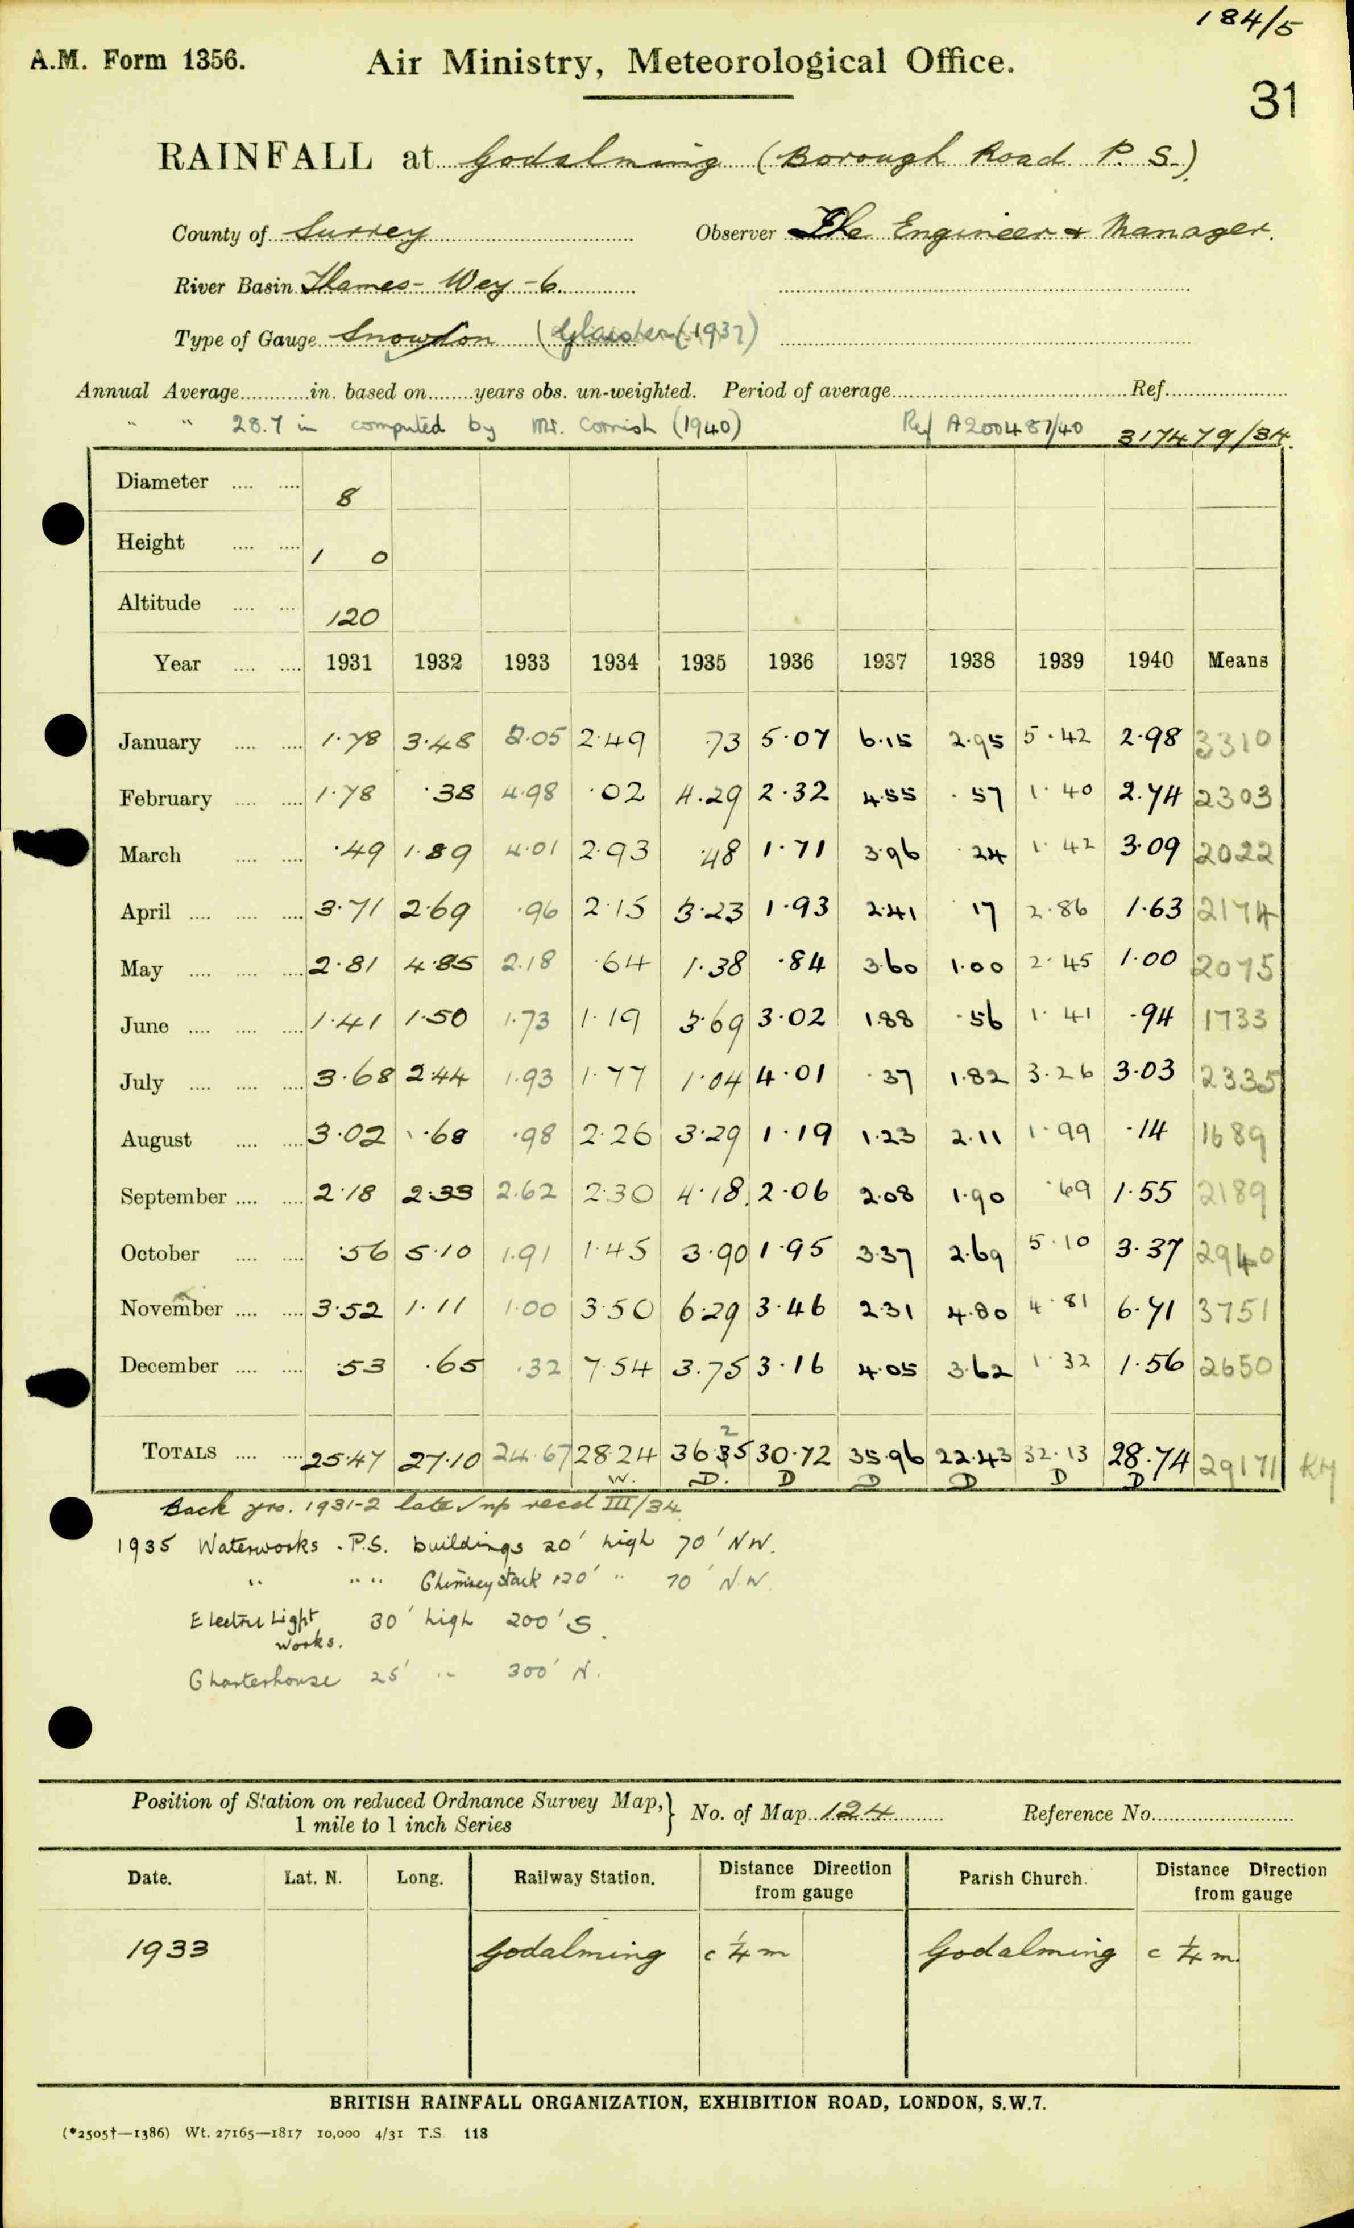 184/5
A.M. Form 1356. Air Ministry, Meteorological Office.
31
RAINFALL at Godalming (Borough Road P. S.)
County of Surrey Observer The Engineer & Manager.
River Basin Thames - Wey - 6.
Type of Gauge Snowdon (Glaisher (1937)
Annual Average............in. based on........years obs. un-weighted. Period of average........................Ref.....................
" " 28.7 in computed by Mr. Cornish (1940) Ref A200487/40 317479/34.
Diameter .... .... 8
Height .... .... 1 0
Altitude .... .... 120
Year .... .... 1931 1932 1933 1934 1935 1936 1937 1938 1939 1940 Means
January .... .... 1.78 3.48 2.05 2.49 .73 5.07 6.15 2.95 5.42 2.98 3310
February .... .... 1.78 .38 4.98 .02 4.29 2.32 4.55 .57 1.40 2.74 2303
March .... .... .49 1.89 4.01 2.93 .48 1.71 3.96 .24 1.42 3.09 2022
April .... .... .... 3.71 2.69 .96 2.15 3.23 1.93 2.41 .17 2.86 1.63 2174
May .... .... .... 2.81 4.85 2.18 .64 1.38 .84 3.60 1.00 2.45 1.00 2075
June .... .... .... 1.41 1.50 1.73 1.19 3.69 3.02 1.88 .56 1.41 .94 1733
July .... .... .... 3.68 2.44 1.93 1.77 1.04 4.01 .37 1.82 3.26 3.03 2335
August .... .... 3.02 .68 .98 2.26 3.29 1.19 1.23 2.11 1.99 .14 1689
September .... .... 2.18 2.33 2.62 2.30 4.18 2.06 2.08 1.90 .69 1.55 2189
October .... .... .56 5.10 1.91 1.45 3.90 1.95 3.37 2.69 5.10 3.37 2940
November .... .... 3.52 1.11 1.00 3.50 6.29 3.46 2.31 4.80 4.81 6.71 3751
December .... .... .53 .65 .32 7.54 3.75 3.16 4.05 3.62 1.32 1.56 2650
TOTALS .... .... 25.47 27.10 24.67 28.24 36.35 30.72 35.96 22.43 32.13 28.74 29171 KM
2
W. D. D D D D D
Back yrs. 1931-2 late recd III/34
1935 Waterworks . P.S. buildings 20' high 70' NW.
" " " Chimney stack 120' " 70' N.W.
Electric Light 30' high 200' S.
Works.
Charterhouse 25' " 300' N.
Position of Station on reduced Ordnance Survey Map,} No. of Map 124 Reference No.
1 mile to 1 inch Series
Date. Lat. N. Long. Railway Station. Distance Direction from gauge Parish Church. Distance Direction from gauge
1933 Godalming c ¼ m Godalming c ¼ m.
BRITISH RAINFALL ORGANIZATION, EXHIBITION ROAD, LONDON, S.W.7.
(*2505†—1386) Wt. 27165—1817 10,000 4/31 T.S. 118